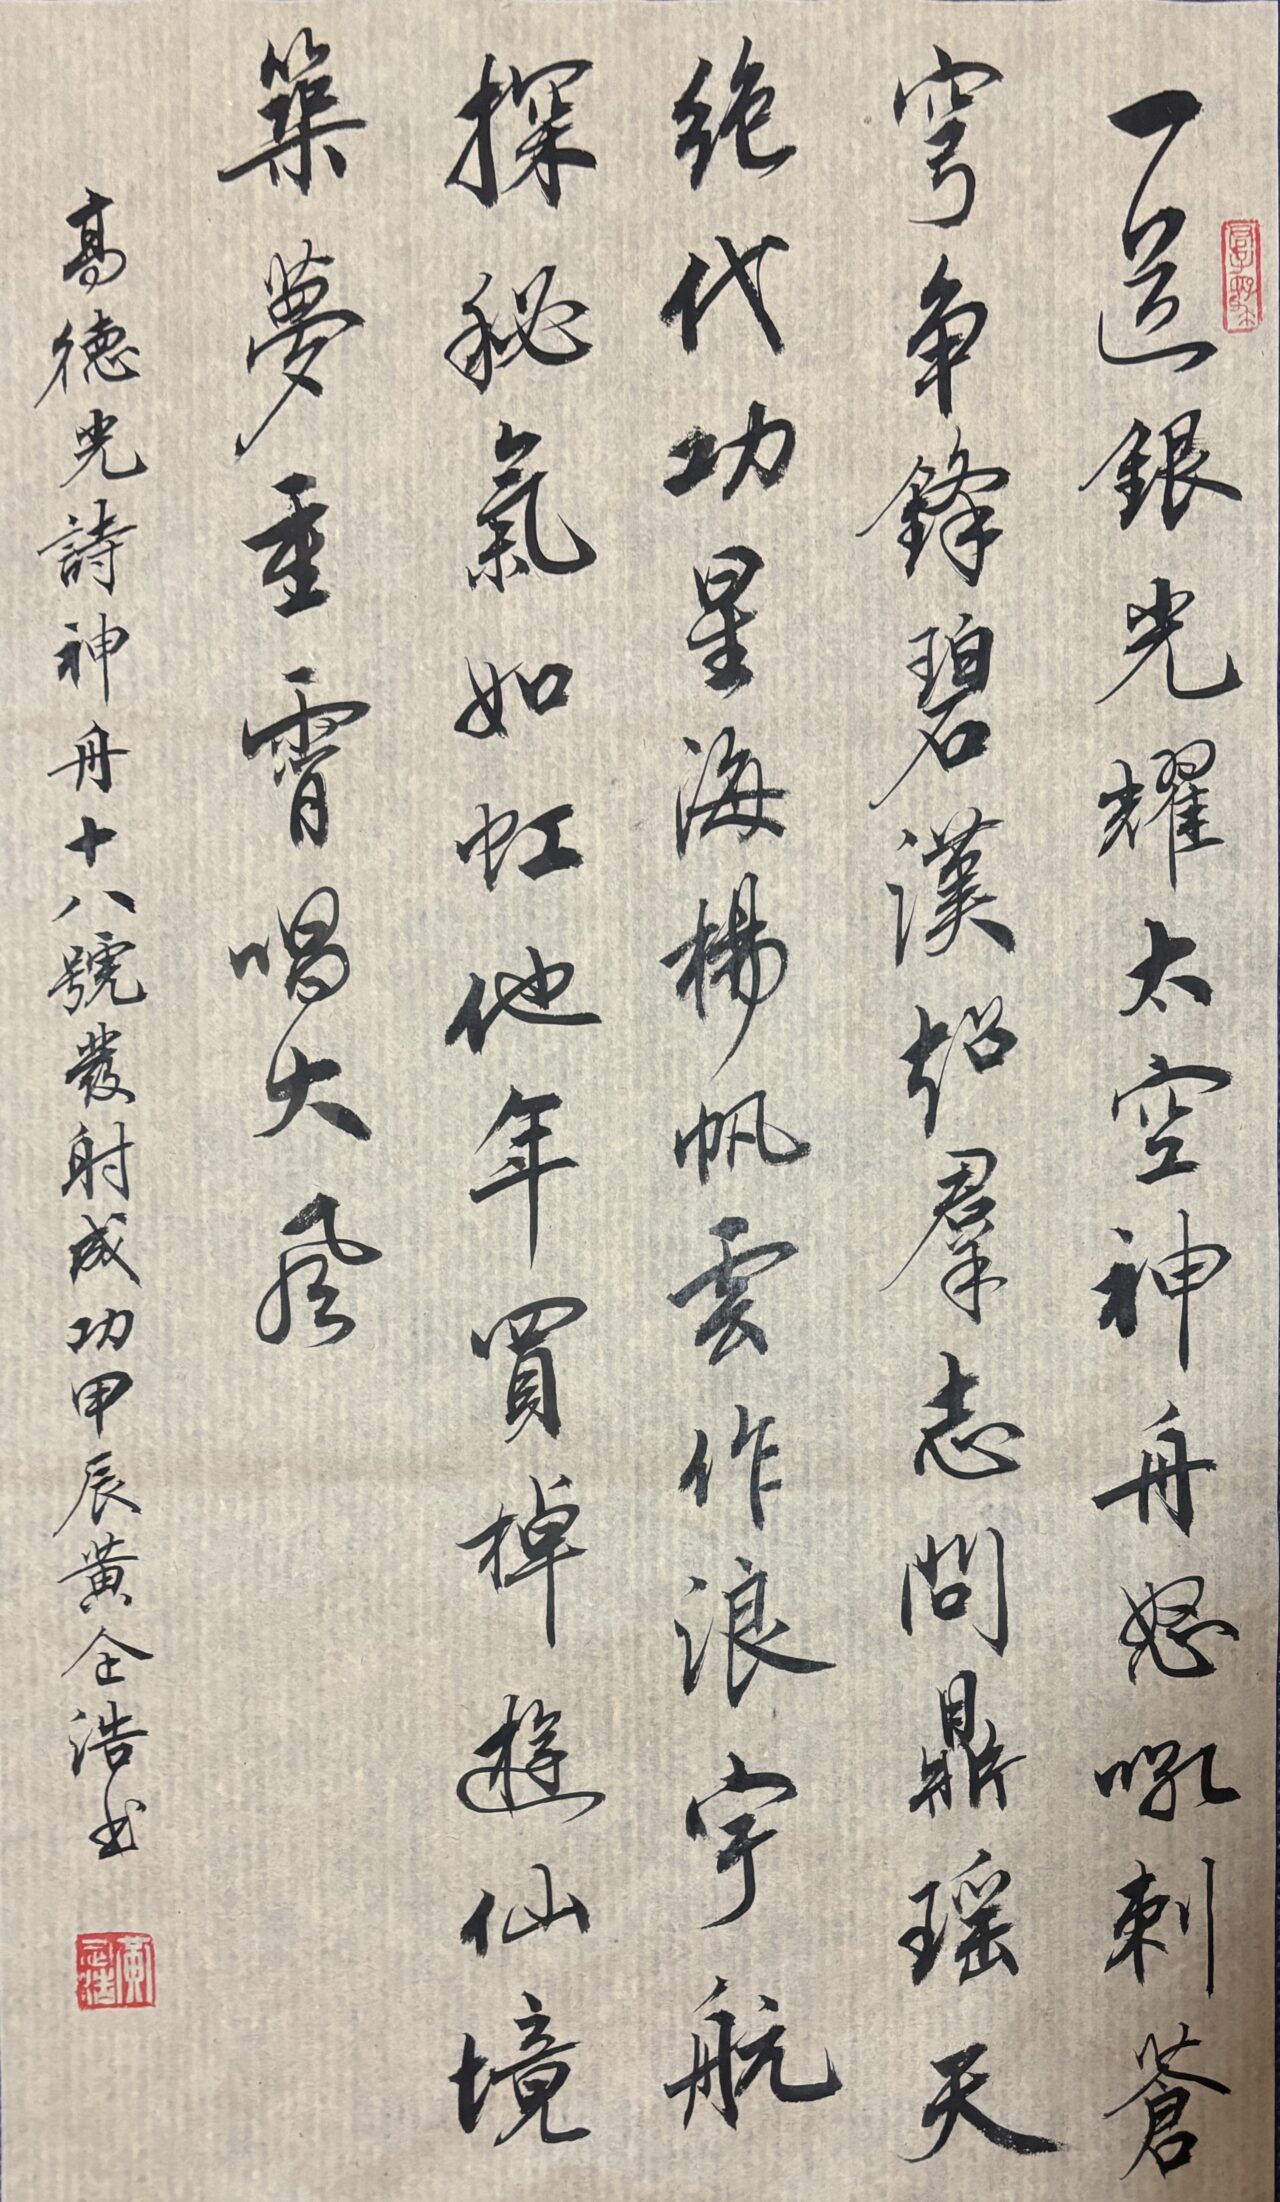 一道銀光耀太空神舟怒吼刺蒼
穹争鋒碧漢超羣志問鼎瑶天
绝代功星海揚帆雲作浪宇航
探秘氣如虹他年買棹遊仙境
築夢重霄唱大风
高德光詩神舟十八號發射成功甲辰黄仝浩书